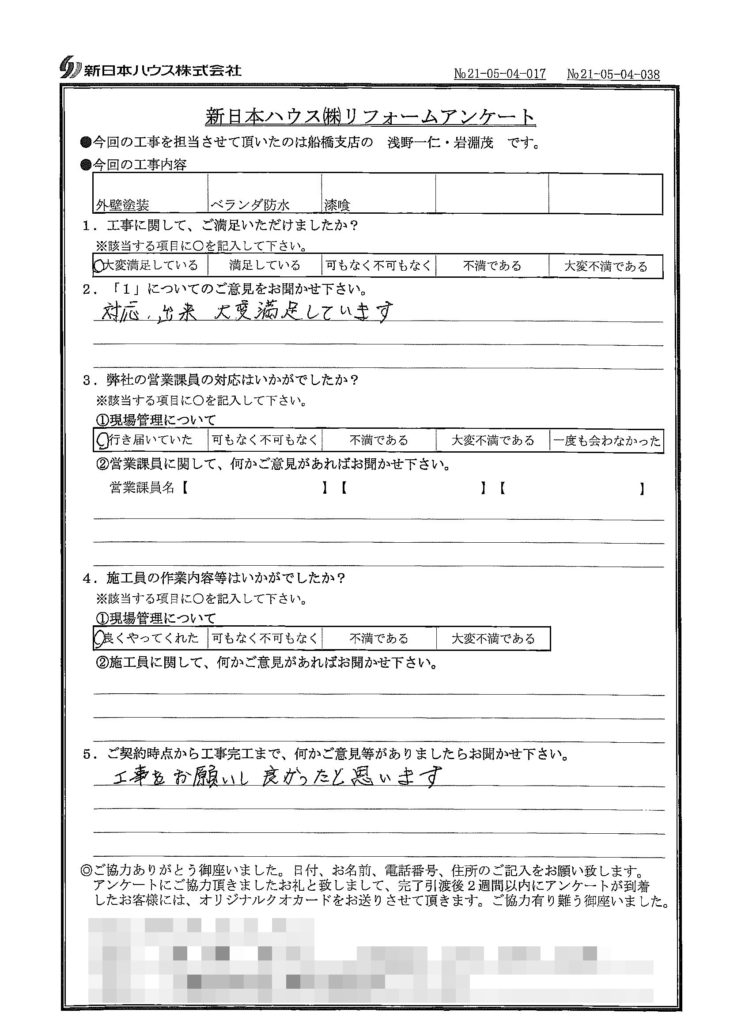 新日本ハウス株式会社
№21-05-04-017 №21-05-04-038
新日本ハウス㈱リフォームアンケート
●今回の工事を担当させて頂いたのは船橋支店の 浅野一仁・岩淵茂 です。
●今回の工事内容
外壁塗装 ベランダ防水 漆喰
1．工事に関して、ご満足いただけましたか？
※該当する項目に○を記入して下さい。
大変満足している 満足している 可もなく不可もなく 不満である 大変不満である
2．「1」についてのご意見をお聞かせ下さい。
対応、出来 大変満足しています
3．弊社の営業課員の対応はいかがでしたか？
※該当する項目に○を記入して下さい。
①現場管理について
行き届いていた 可もなく不可もなく 不満である 大変不満である 一度も会わなかった
②営業課員に関して、何かご意見があればお聞かせ下さい。
営業課員名【 】【 】【 】
4．施工員の作業内容等はいかがでしたか？
※該当する項目に○を記入して下さい。
①現場管理について
良くやってくれた 可もなく不可もなく 不満である 大変不満である
②施工員に関して、何かご意見があればお聞かせ下さい。
5．ご契約時点から工事完工まで、何かご意見等がありましたらお聞かせ下さい。
工事をお願いし良かったと思います
◎ご協力ありがとう御座いました。日付、お名前、電話番号、住所のご記入をお願い致します。
アンケートにご協力頂きましたお礼と致しまして、完了引渡後2週間以内にアンケートが到着
したお客様には、オリジナルクオカードをお送りさせて頂きます。ご協力有り難う御座いました。